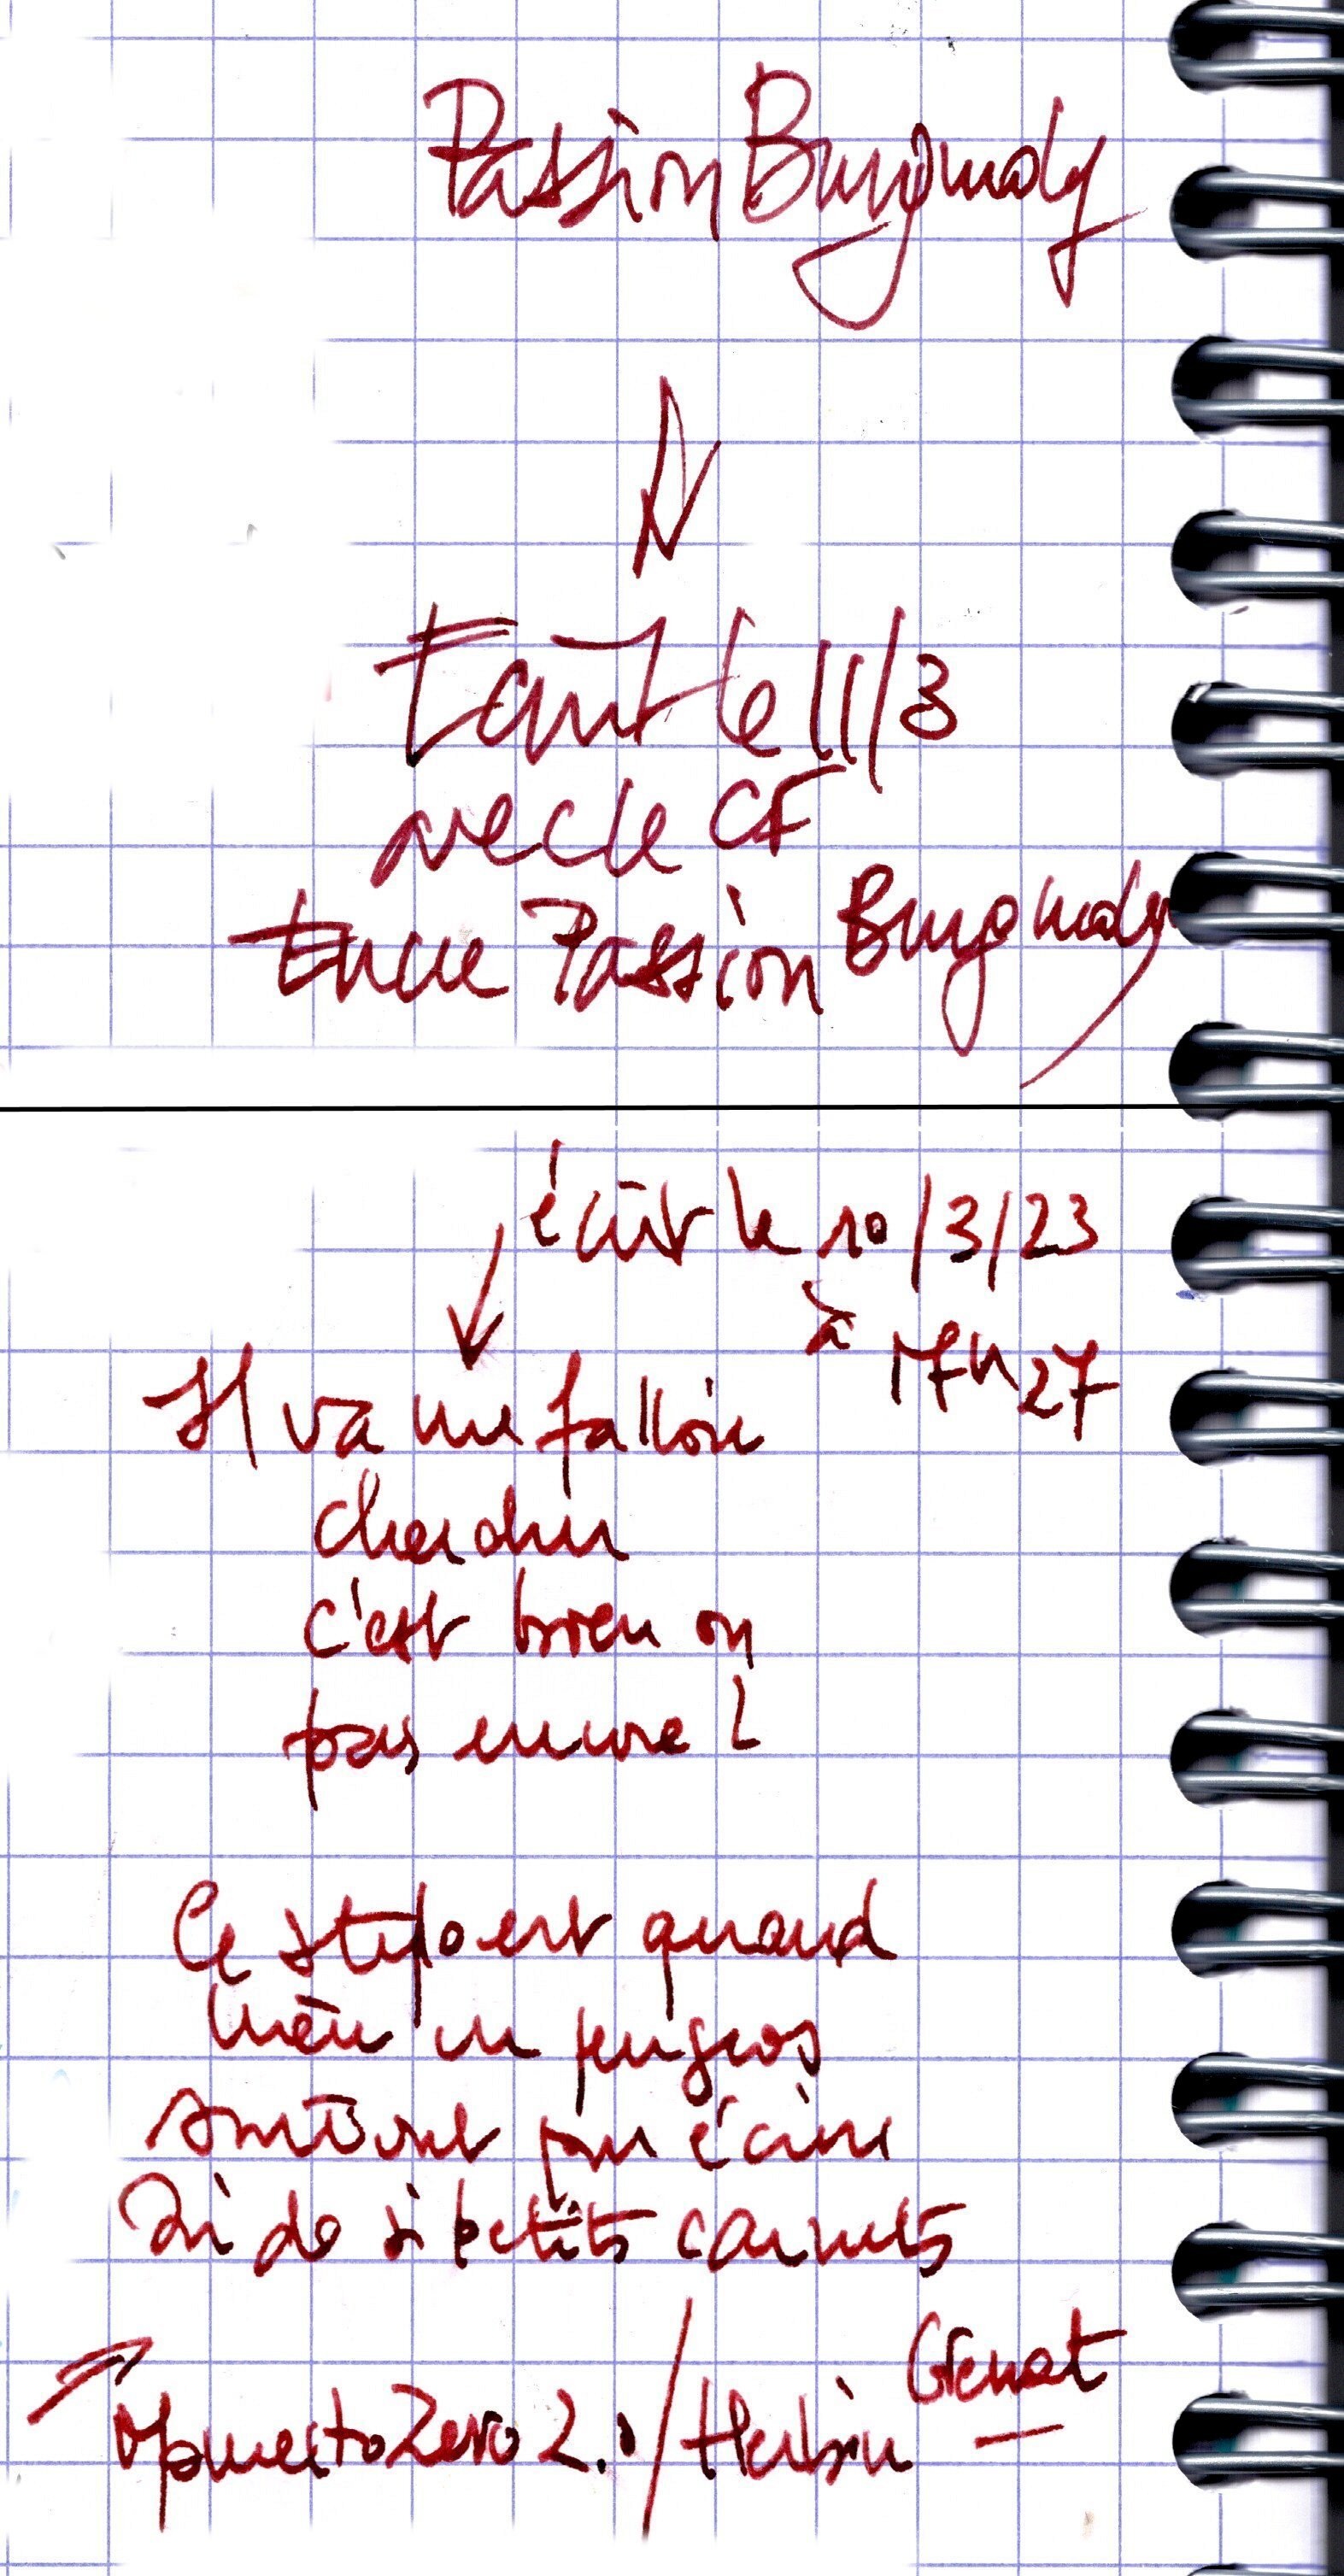 Passion Burgundy
Écrit le 11/3
avec le CF
Encre Passion Burgundy
écrit le 10/3/23
à 17h27
Il va me falloir
chercher
c'est bien ou
pas encore ?
Ce stylo est quand
même un peu gros
surtout pour écrire
sur de si petits carnets
Momento Zero 2.0 / Herbin Grenat